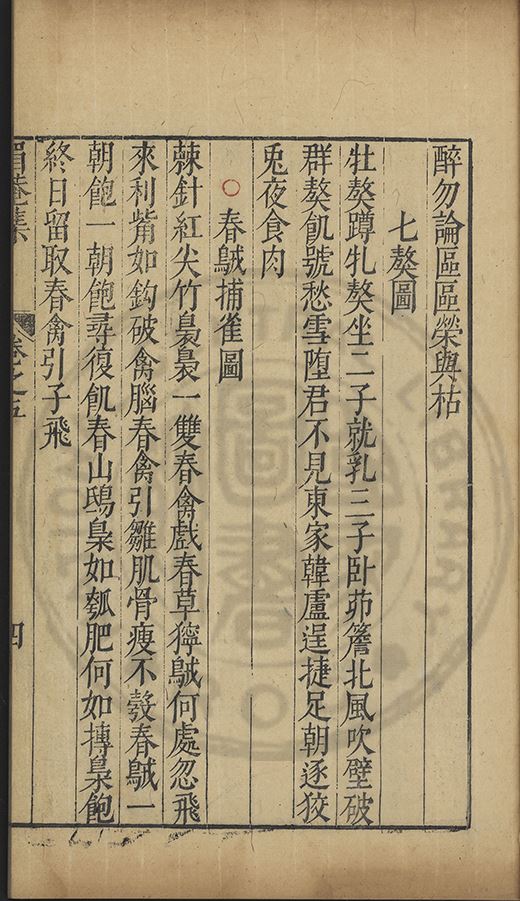 醉勿論區區榮與枯
七獒圖
牡獒蹲牝獒坐二子就乳三子卧茆簷北風吹壁破
群獒飢號愁雪墮君不見東家韓盧逞捷足朝逐狡
兎夜食肉
春鴏捕雀圖
棘針紅尖竹裊裊一雙春禽戲春草獰鴏何處忽飛
來利觜如鈎破禽腦春禽引雛肌骨瘦不彀春鴏一
朝飽一朝飽尋復飢春山鴟梟如瓠肥何如摶梟飽
終日留取春禽引子飛
眉菴集 卷之五 四